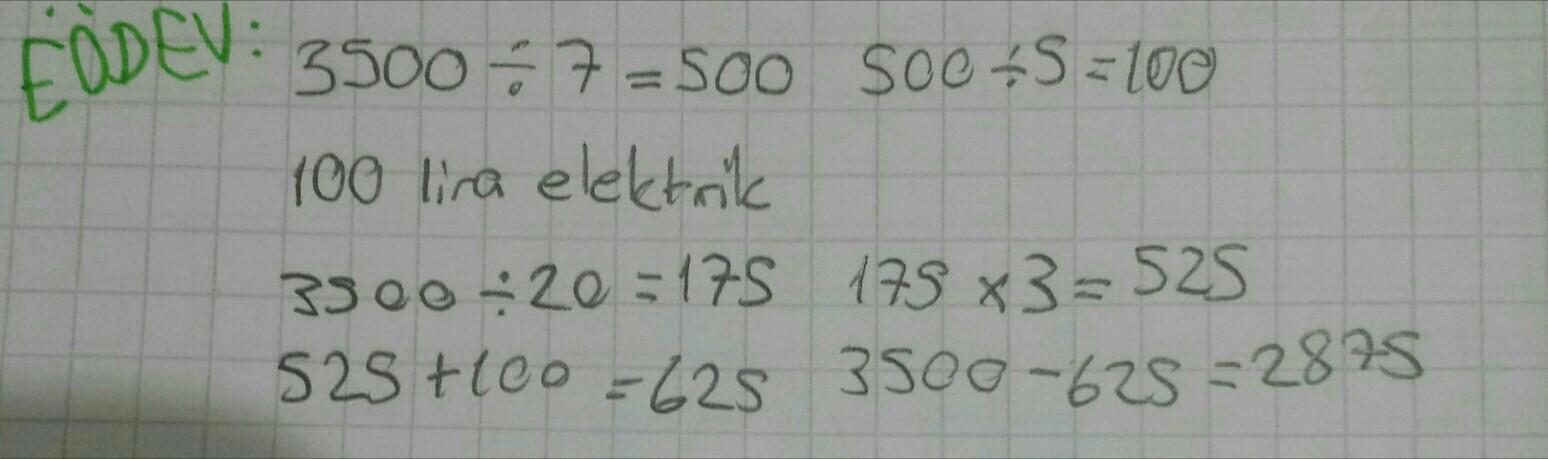 EÖDEV: 3500 ÷ 7 = 500 500 ÷ 5 = 100
100 lira elektrik
3500 ÷ 20 = 175 175 x 3 = 525
525 + 100 = 625 3500 - 625 = 2875